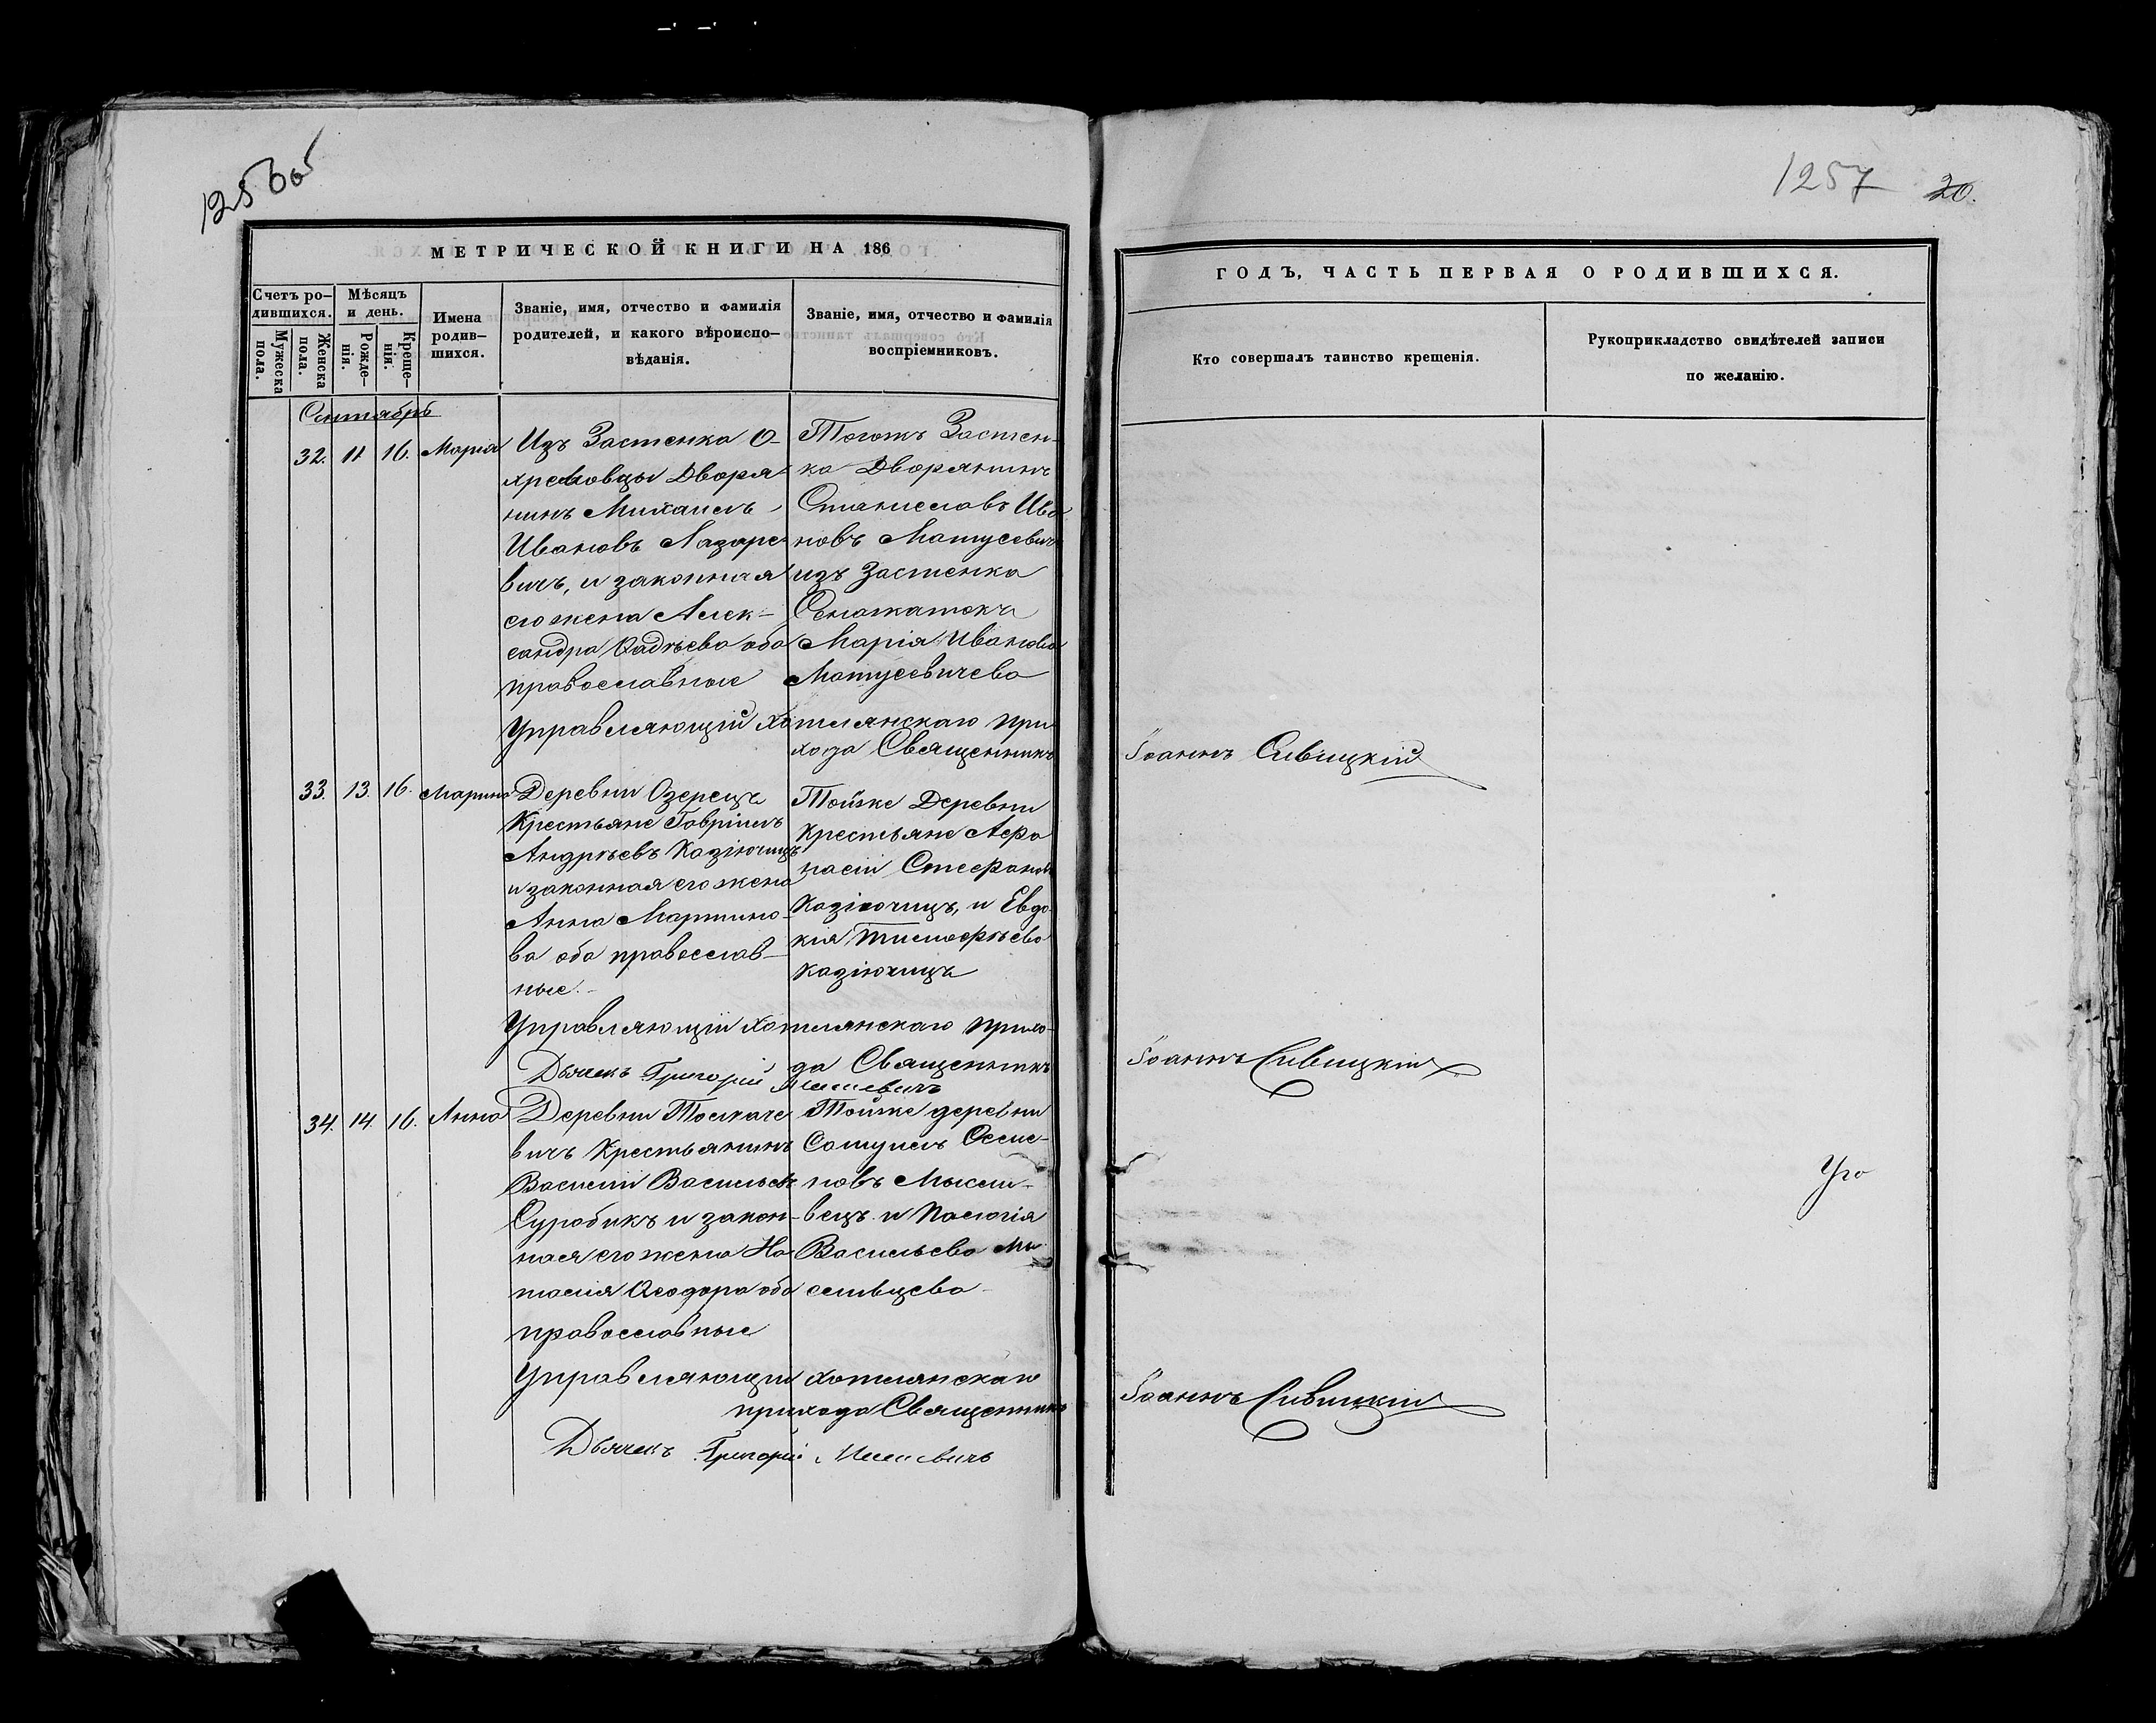 1256об
1257 20.
МЕТРИЧЕСКОЙ КНИГИ НА 186
ГОДЪ, ЧАСТЬ ПЕРВАЯ О РОДИВШИХСЯ.
Счетъ ро-
дившихся.
Мужеска
пола.
Женска
пола.
Мѣсяцъ
и день.
Рожде-
нія.
Креще-
нія.
Имена
родив-
шихся.
Званіе, имя, отчество и фамилія
родителей, и какого вѣроиспо-
вѣданія.
Званіе, имя, отчество и фамилія
воспріемниковъ.
Кто совершалъ таинство крещенія.
Рукоприкладство свидѣтелей записи
по желанію.
Сентябрь
32. 11 16. Марія
Изъ Застенка О-
Дворя-
нинъ Михаилъ
Ивановъ Лазаре-
вичъ, и законная
его жена Алек-
сандра Фадѣева оба
православные
Тогожъ Застен-
ка Дворянинъ
Станиславъ Ива
новъ Матусевичъ
изъ Застенка
Марія Иванова
Матусевичева
Управляющій Хотлянскаго при
хода Священникъ
Іоаннъ Сивицкій
33. 13. 16. Марина
Деревни Озерецъ
Крестьяне Гавріилъ
Андрѣевъ Казючицъ
и законная его жена
Анна Мартино-
ва оба православ-
ные.
Тойже Деревни
Крестьяне Афа
насій Стефановъ
Казючицъ, и Евдо
кія Тимофѣева
Казючицъ
Управляющій Хотлянскаго прихо-
да Священникъ
Іоаннъ Сивицкій
Дьячекъ Григорій
34. 14. 16. Анна
Деревни Толкаче
вичъ Крестьянинъ
Василій Васильевъ
Суробикъ и закон-
ная его жена На-
талія Ѳеодора оба
православные
Тойже деревни
Самуилъ Осипо-
новъ Мысли-
вецъ и Палагія
Васильева Мы-
сливцева
Управляющій Хотлянскаго
прихода Священникъ
Іоаннъ Сивицкій
Дьячекъ Григорій